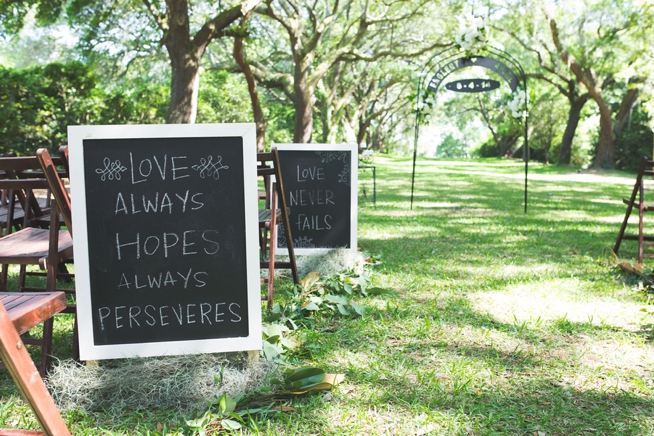 LOVE
ALWAYS
HOPES
ALWAYS
PERSEVERES
LOVE
NEVER
FAILS
5-4-14